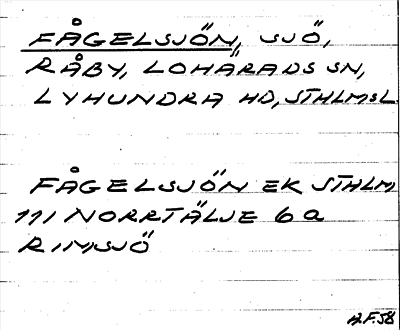 FÅGELSJÖN, SJÖ,
RÅBY, LOHÄRADS SN,
LYHUNDRA HD, STHLMSL
FÅGELSJÖN EK STHLM
111 NORRTÄLJE 6a
RIMSJÖ
H.F.58